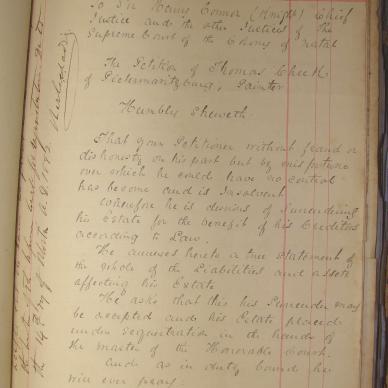 To Sir Henry Connor (Knight) Chief
Justice and the other Justices of the
Supreme Court of the Colony of Natal
The Petition of Thomas Cheek
of Pietermaritzburg, Painter
Humbly Sheweth
That your Petitioner without fraud or
dishonesty on his part but by misfortune
over which he could have no control
has become and is Insolvent
Wherefore he is desirous of Surrendering
his Estate for the benefit of his Creditors
according to Law.
He annexes hereto a true statement of
the whole of the Liabilities and assets
affecting his Estate
He asks that this his Surrender may
be accepted and his Estate placed
under sequestration in the hands of
the Master of the Honorable Court.
And as in duty bound he
will ever pray.
the 14th day of March A.D.